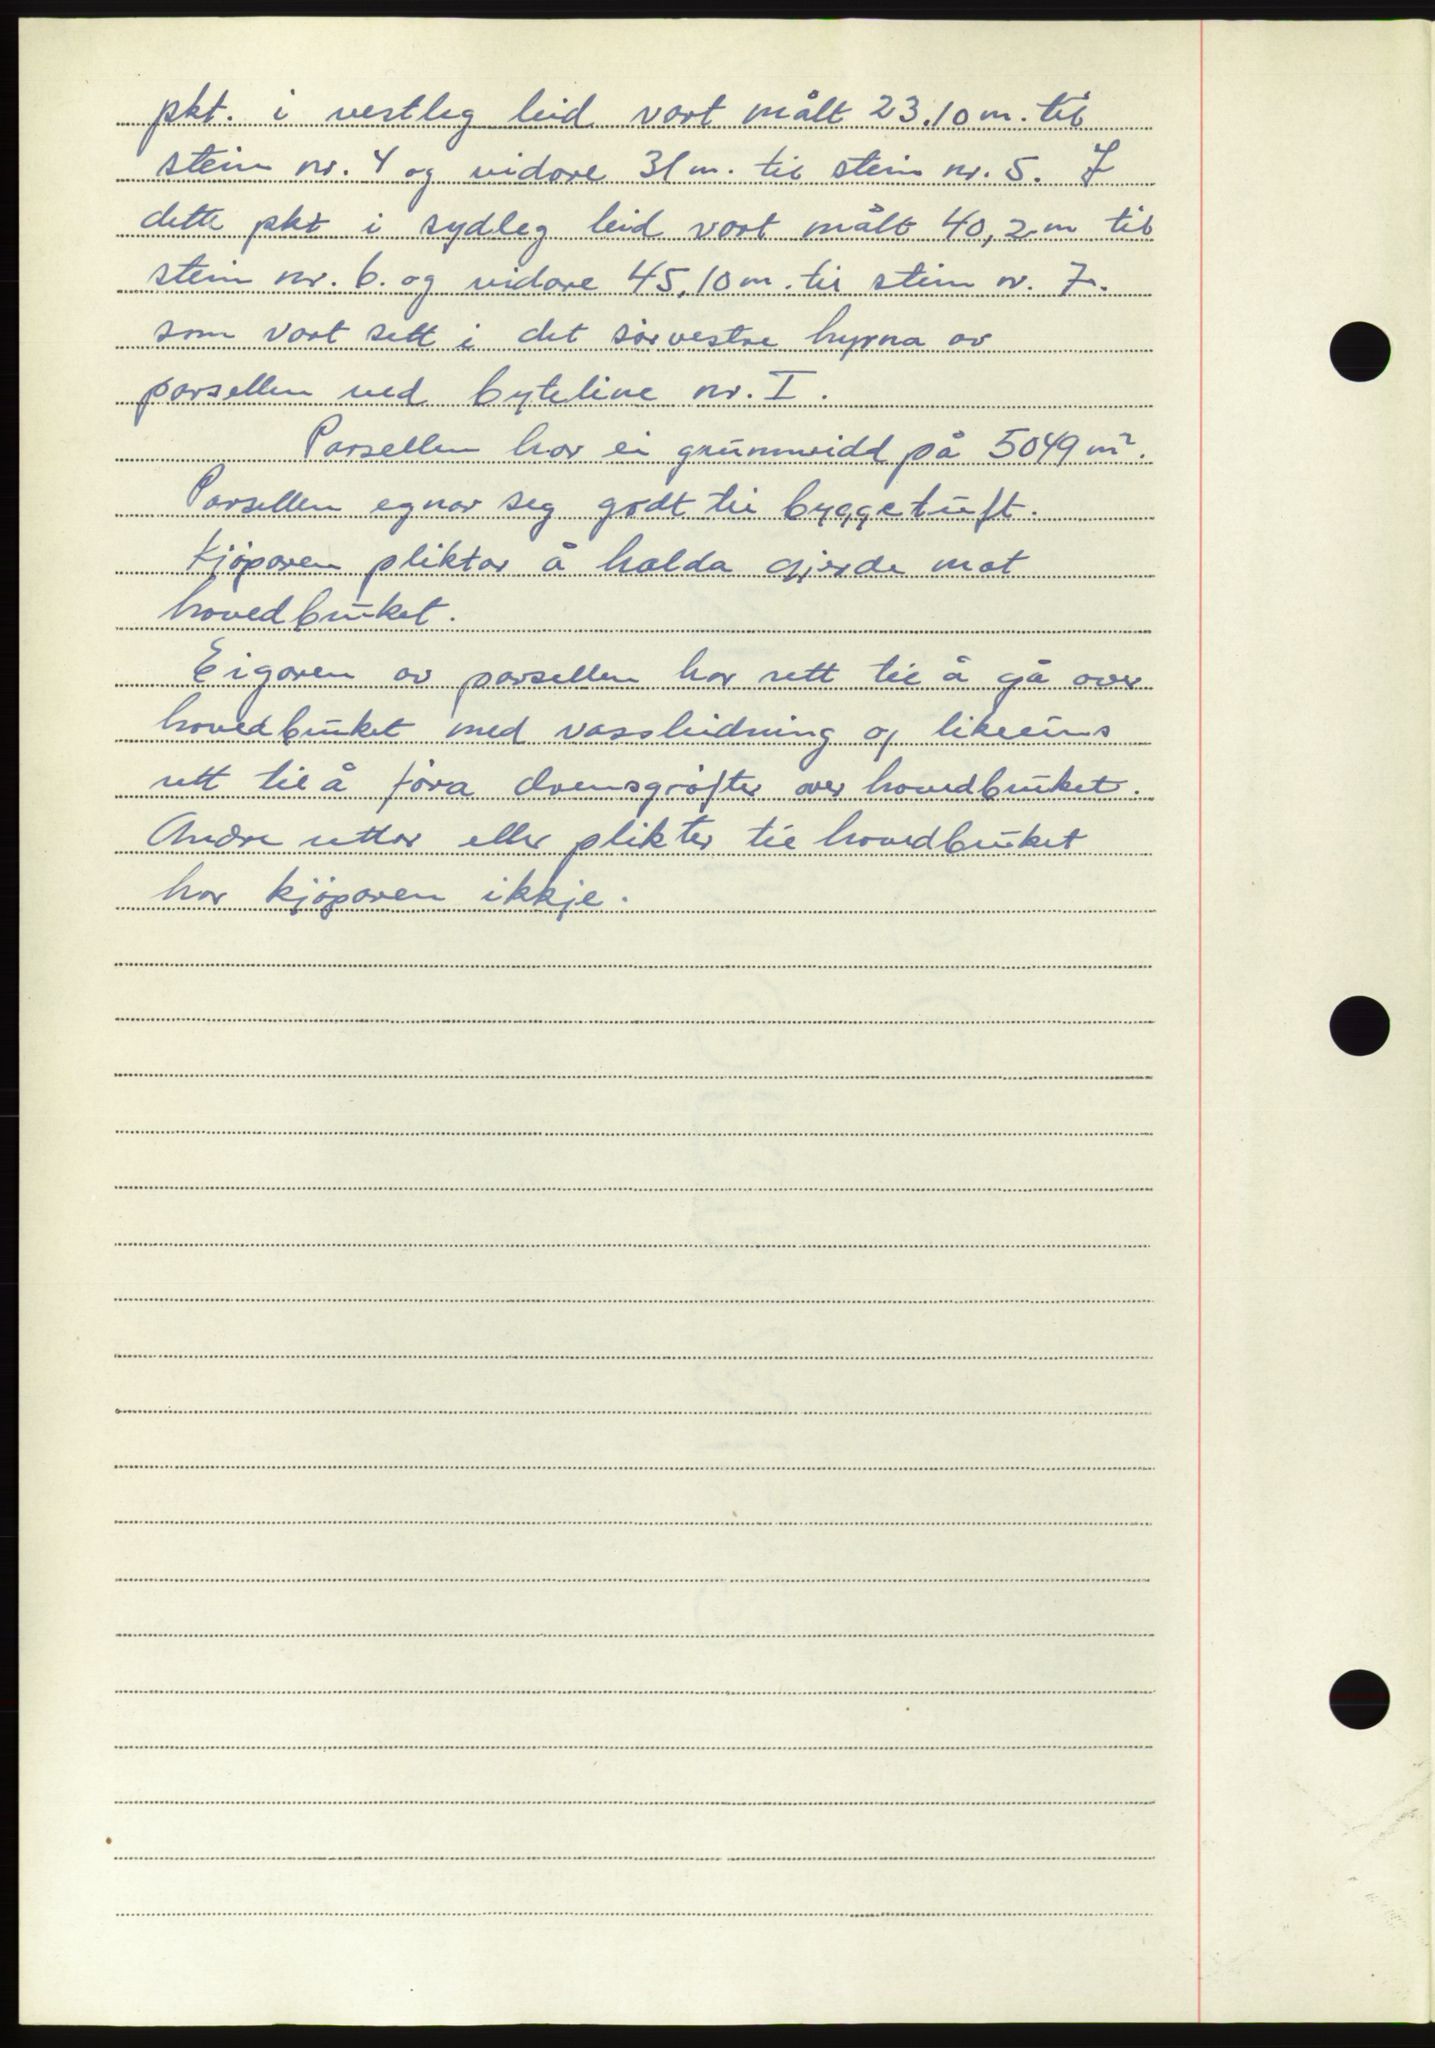 pkt. i vestleg leid vart målt 23.10 m. til
stein nr. 4 og vidare 31 m. til stein nr. 5. I
dette pkt i sydleg leid vart målt 40,2 m til
stein nr. 6. og vidare 45,10 m. til stein nr. 7.
som vart sett i det sørvestre hyrna av
parsellen ved byteline nr. I.
Parsellen har ei grunnvidd på 5049 m².
Parsellen egnar seg godt til byggetuft.
Kjøparen pliktar å halda gjerde mot
hovedbruket.
Eigaren av parsellen har rett til å gå over
hovedbruket med vassleidning og likeeins
rett til å føra drensgrøfter over hovedbruket.
Andre rettar eller plikter til hovedbruket
har kjøparen ikkje.